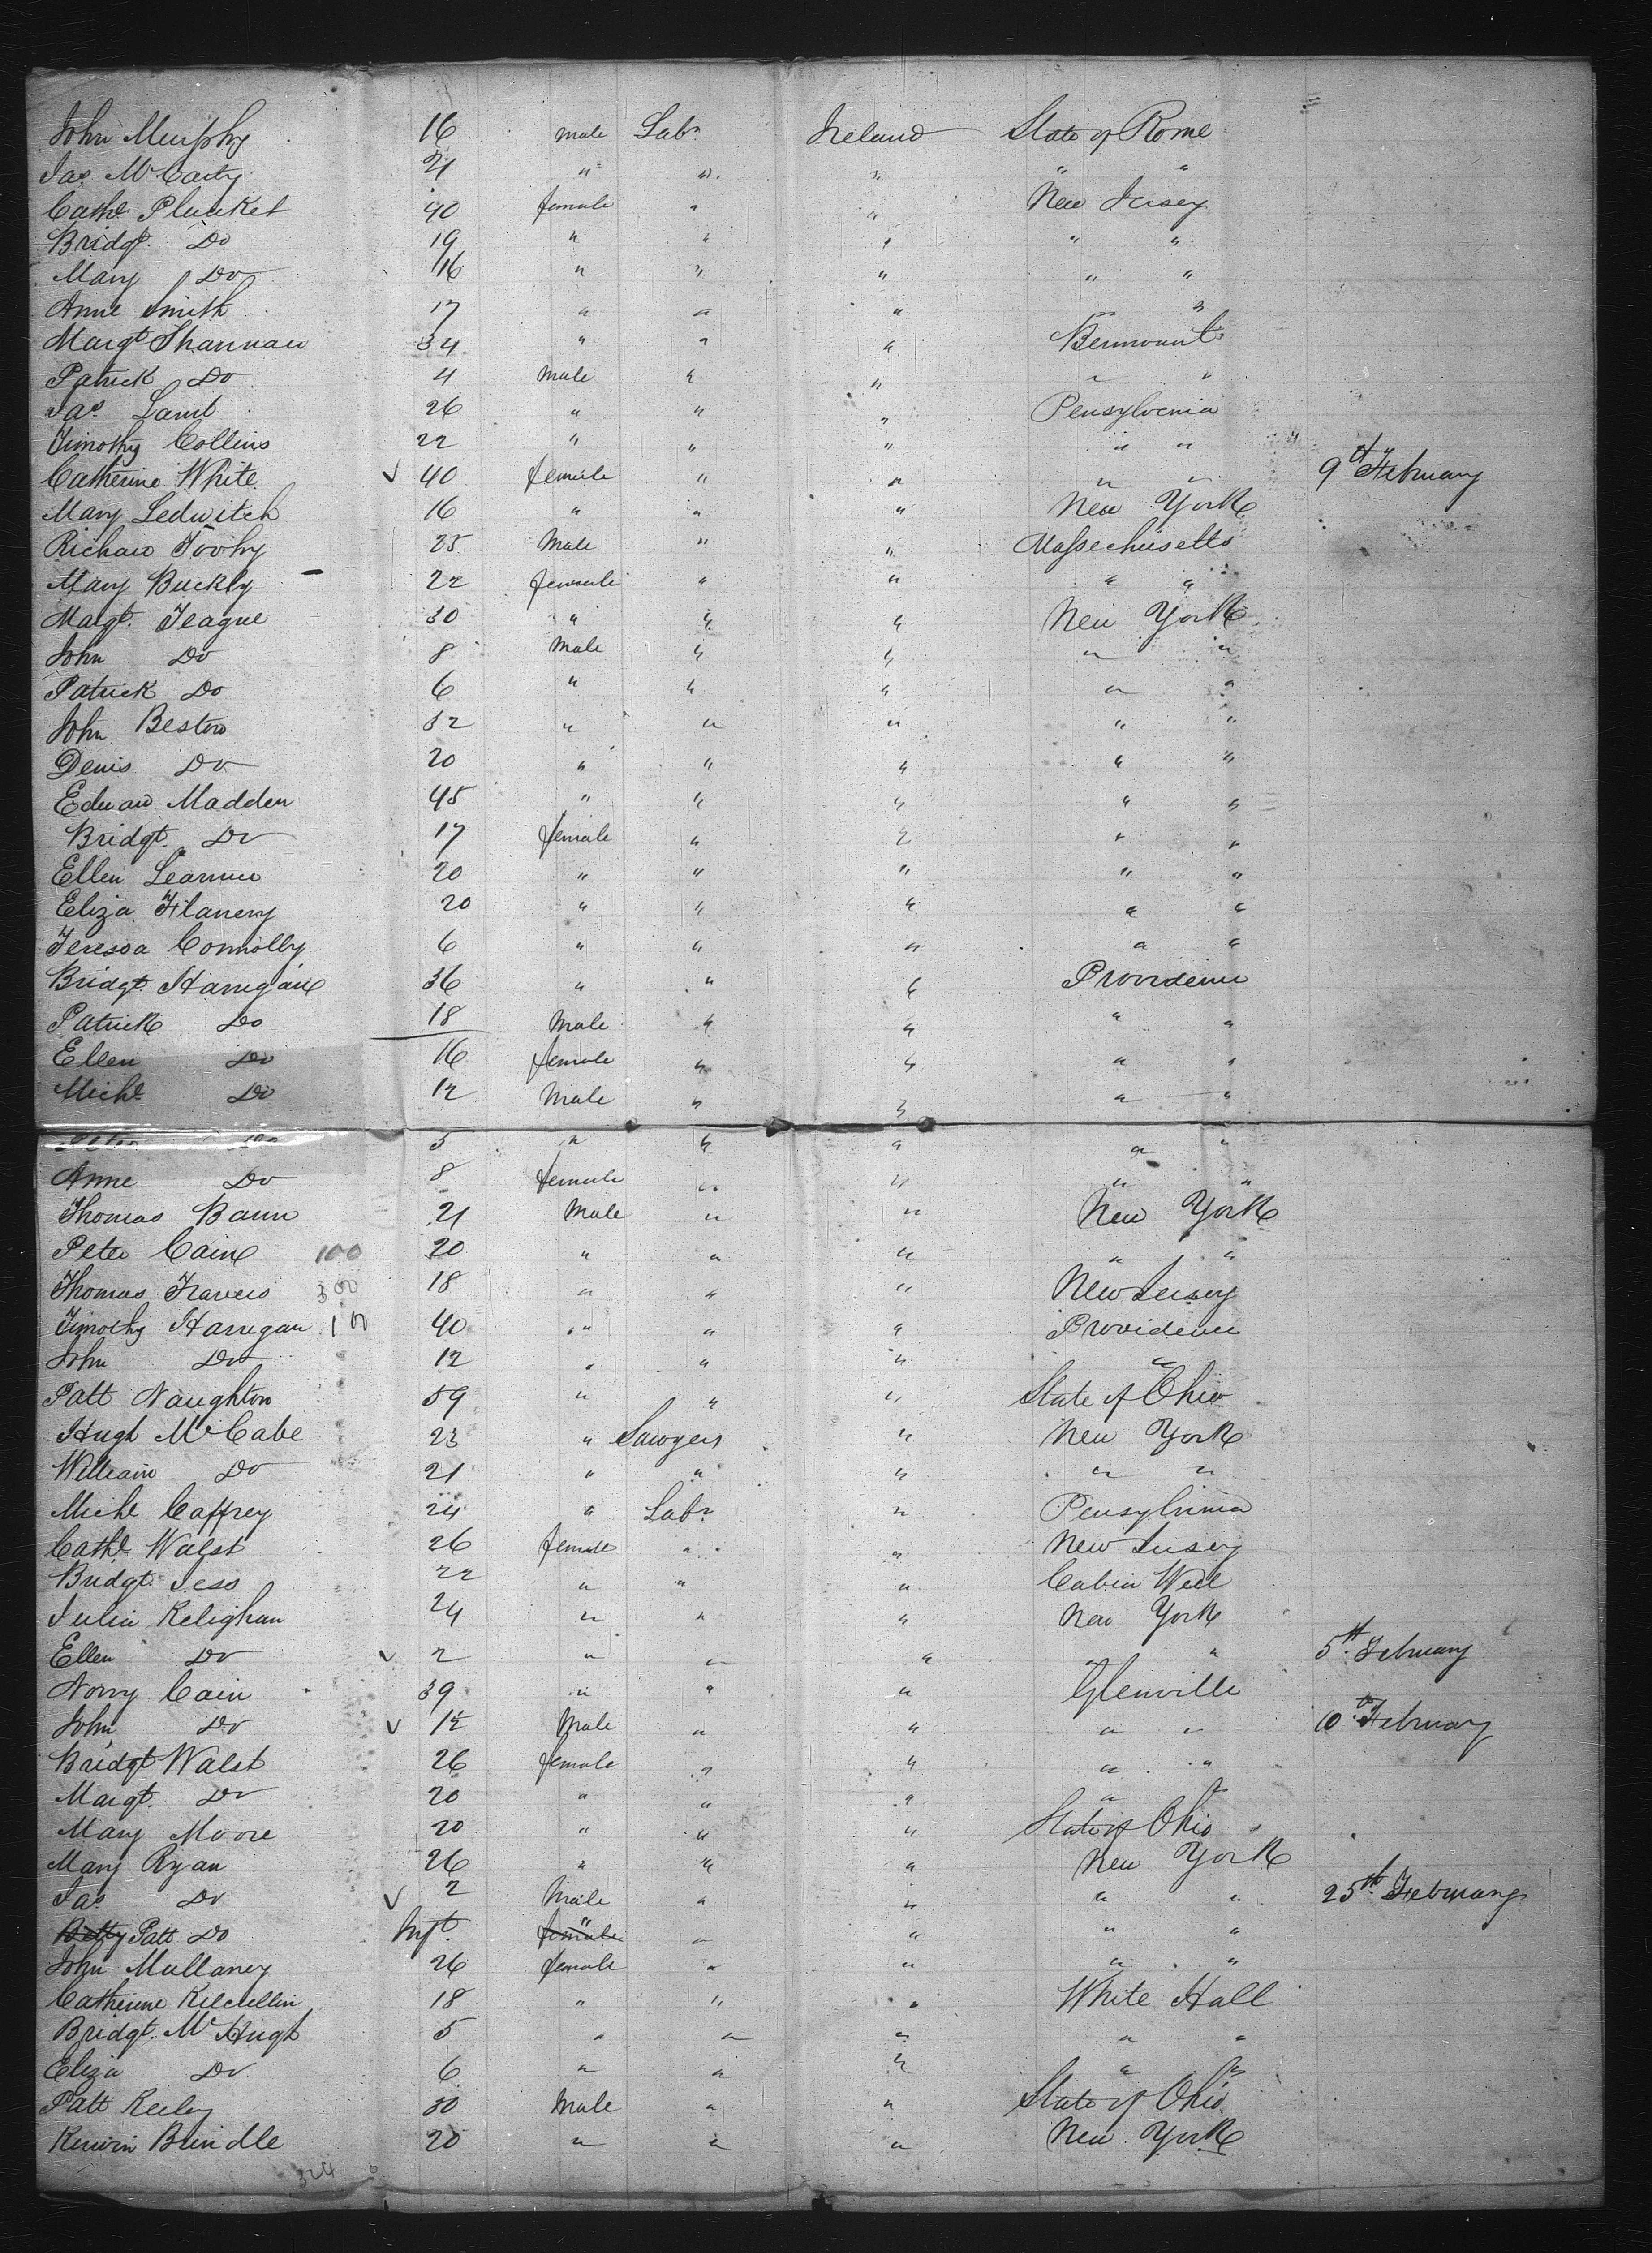 John Murphy 16 male Labr Ireland State of Rome
Jas McCarty 21 " " " " "
Cathe Plunket 40 female " " New Jersey
Bridgt. Do 19 " " " " "
Mary Do 16 " " " " "
Anne Smith 17 " " " " "
Margt Shannan 34 " " " Bermount
Patrick Do 4 Male " " " "
Jas Lamb 26 " " " Pensylvenia
Timothy Collins 22 " " " " "
Catherine White ✓ 40 female " " " " 9th February
Mary Ledwitch 16 " " " New York
Richard Toohy 25 Male " " Massechusetts
Mary Buckly 22 female " " " "
Margt. Teague 30 " " " New York
John Do 8 Male " " " "
Patrick Do 6 " " " " "
John Beston 32 " " " " "
Denis Do 20 " " " " "
Edward Madden 45 " " " " "
Bridgt. Do 17 female " " " "
Ellen 20 " " " " "
Eliza Flanery 20 " " " " "
Teresa Connolly 6 " " " " "
Bridgt. Harregane 36 " " " Providence
Patrick Do 18 Male " " " "
Ellen Do 16 female " " " "
Michl Do 12 Male " " " "
Peter Do 5 " " " " "
Anne Do 8 female " " " "
Thomas Bann 21 Male " " New York
Peter Caine 100 20 " " " " "
Thomas Travers 300 18 " " " New Jersey
Timothy Harregan 100 40 " " " Providence
John Do 12 " " " "
Patt Naughton 59 " " " State of Ohio
Hugh McCabe 23 " Sawyers " New York
William Do 21 " " " " "
Michl Caffrey 24 " Labr " Pensylvinia
Cathe Walst 26 female " " New Jersey
Bridgt. Jess 22 " " " Cabin Well
Julia Kelighan 24 " " " New York
Ellen Do ✓ 2 " " " " " 5th February
Norry Cain 39 " " " Glenville
John Do ✓ 12 Male " " " " 10th February
Bridgt Walst 26 female " " " "
Margt. Do 20 " " " " "
Mary Moore 20 " " " State of Ohio
Mary Ryan 26 " " " New York
Jas Do ✓ 2 Male " " " " 25th February
Betty Patt Do Inft. female " " " " "
John Mullaney 26 female " " " "
Catherine Kilcullin 18 " " " White Hall
Bridgt. McHugh 5 " " " " "
Eliza Do 6 " " " " "
Patt Keeley 30 Male " " State of Ohio
Kerwin Brindle 20 " " " New York
324